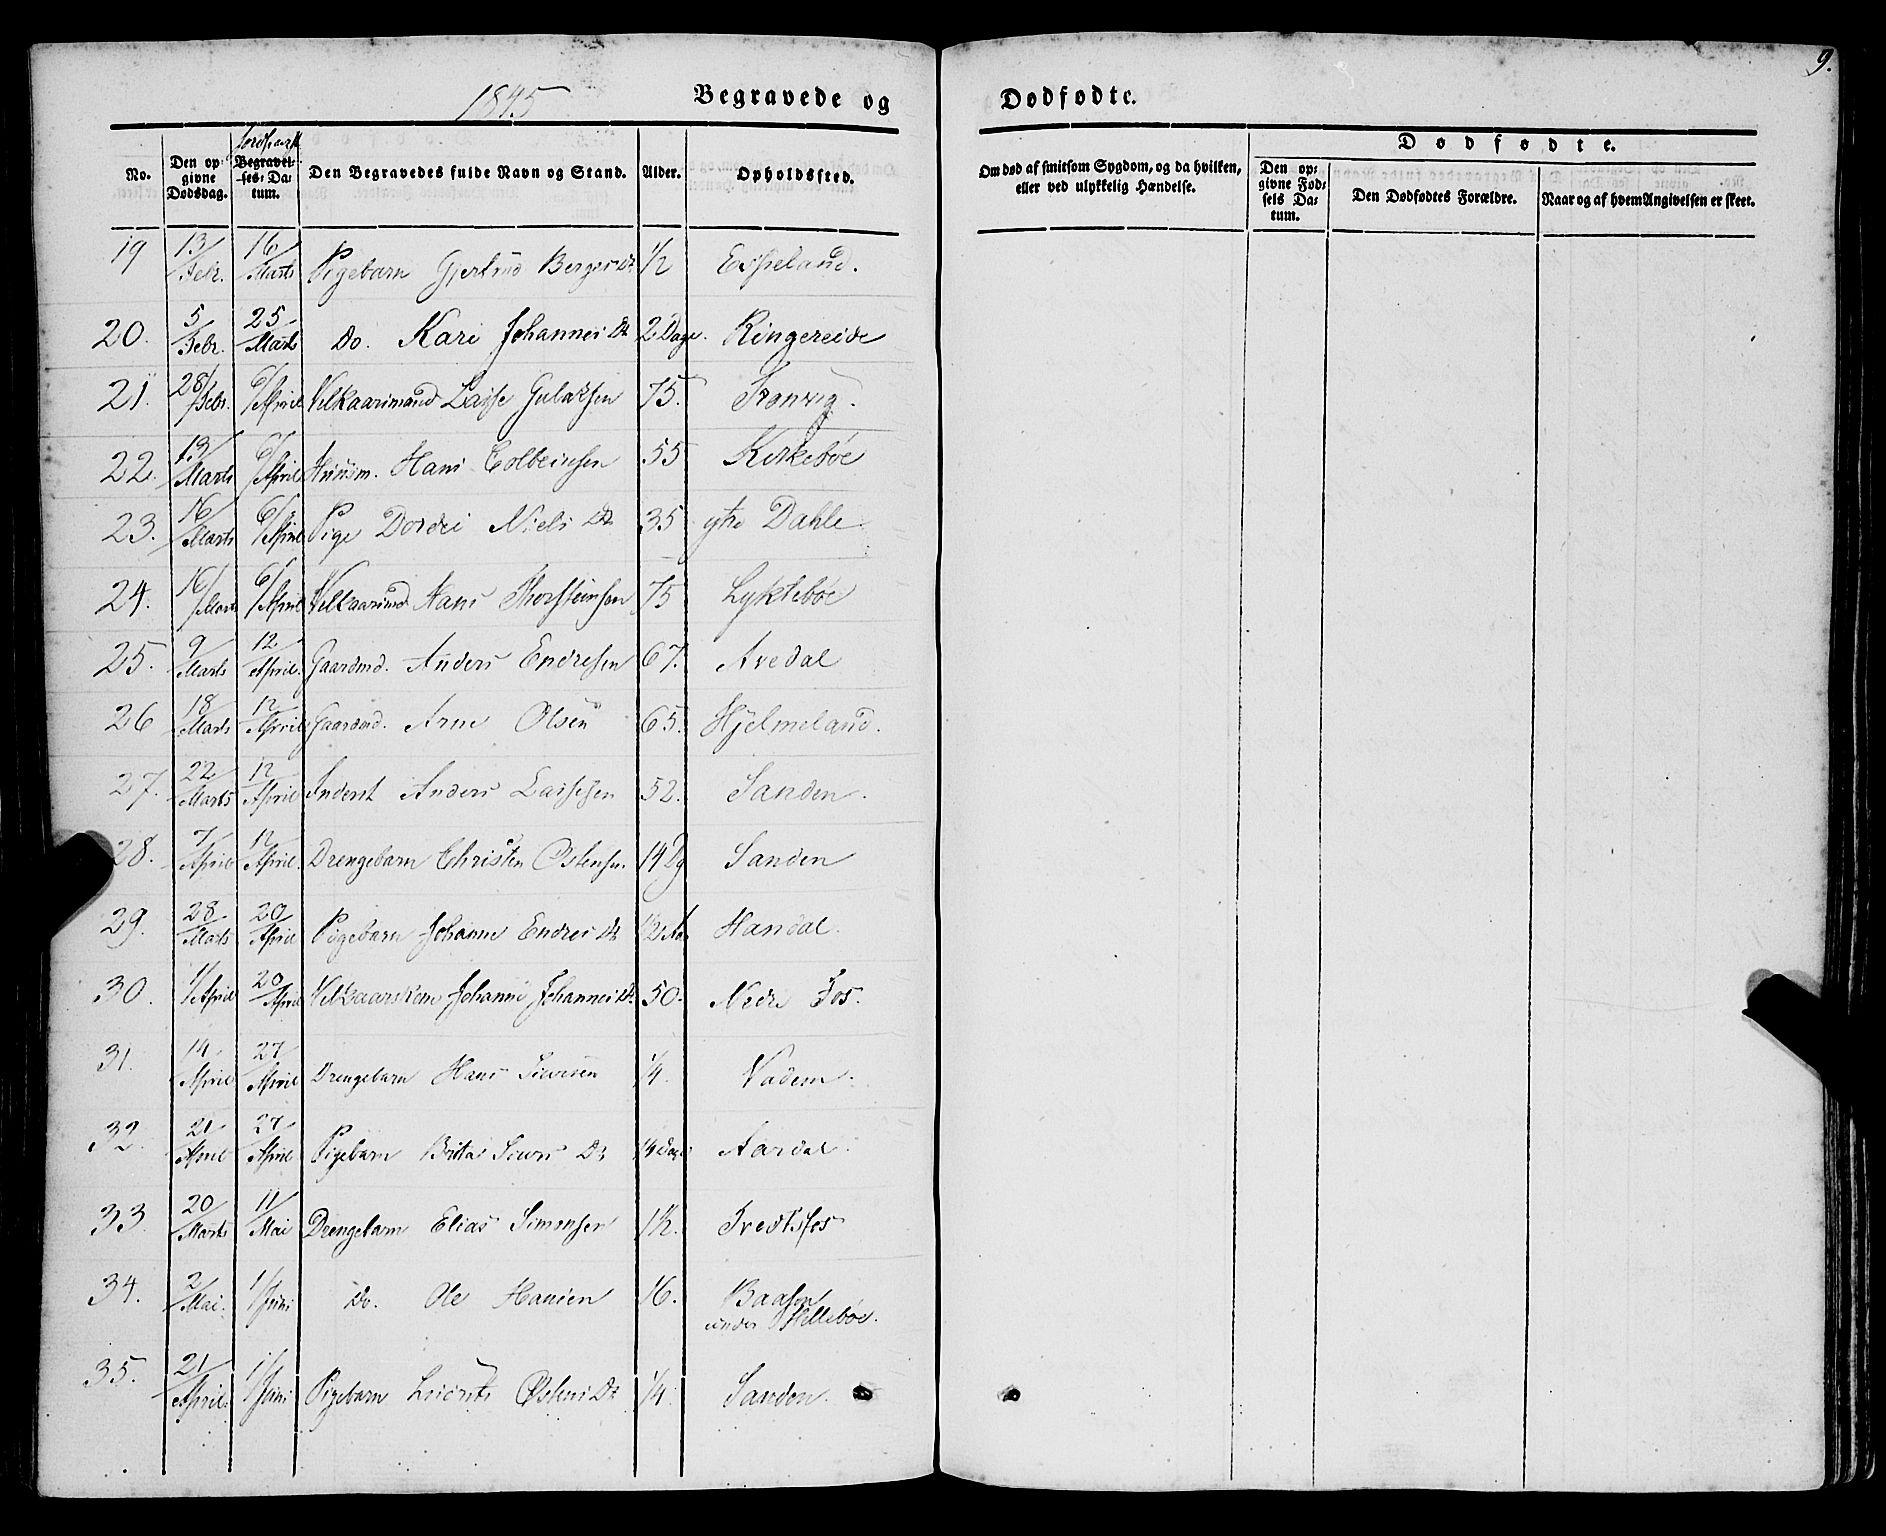 9.
1845 Begravede og Dødfødte.
No. Den opgivne Dødsdag. Jordpaak. Begravelses-Datum. Den Begravedes fulde Navn og Stand. Alder. Opholdssted. Om død af smitsom Sygdom, og da hvilken, eller ved ulykkelig Hændelse. Dødfødte. Den opgivne Fødsels Datum. Den Dødfødtes Forældre. Naar og af hvem Angivelsen er skeet.
19 13/Febr. 16/Marts Pigebarn Gjertrud Berges Dr. 1/2 Espeland.
20. 5/Febr. 25/Marts Do. Kari Johannes Dr 2 Dage. Ringereide
21. 28/Febr. 6/April Velkaarsmand Lasse Gulaksen 75.
22. 13/Marts 6/April Huusm. Hans Colbeinsen 55 Kirkebøe
23. 16/Marts 6/April Pige Dordei Niels Dr 35 ytre Dahle.
24. 16/Marts 6/April Velkaarsmd. Hans Thorsteinsen 75 Lyktebøe
25. 9/Marts 12/April. Gaardmd. Anders Endresen 67. Avedal
26 18/Marts 12/April Gaardmd. Arne Olsen 65. Hjelmeland.
27. 22/Marts 12/April Inderst Anders Lassesen 52. Sanden.
28. 7/April 12/April. Drengebarn Christen Østensen. 14 Dg Sanden
29. 28/Marts 20/April Pigebarn Johanne Endres Dr 1/2 Aar Handal.
30. 1/April 20/April Velkaarskone Johanne Johannes Dr. 50. Nedre Fos.
31. 14/April 27/April Drengebarn Hans Siversen 1/4. Vadem.
32. 21/April 27/April Pigebarn Britta Sivers Dr 14 Dage Aardal.
33. 20/Marts 11/Mai Drengebarn Elias Simonsen 1 1/2. Tredtsfos
34. 2/Mai. 1/Juni Do. Ole Hansen 1/6. Baasen under Hellebøe.
35. 21/April. 1/Juni Pigebarn Østens Dr 1/4. Sanden.